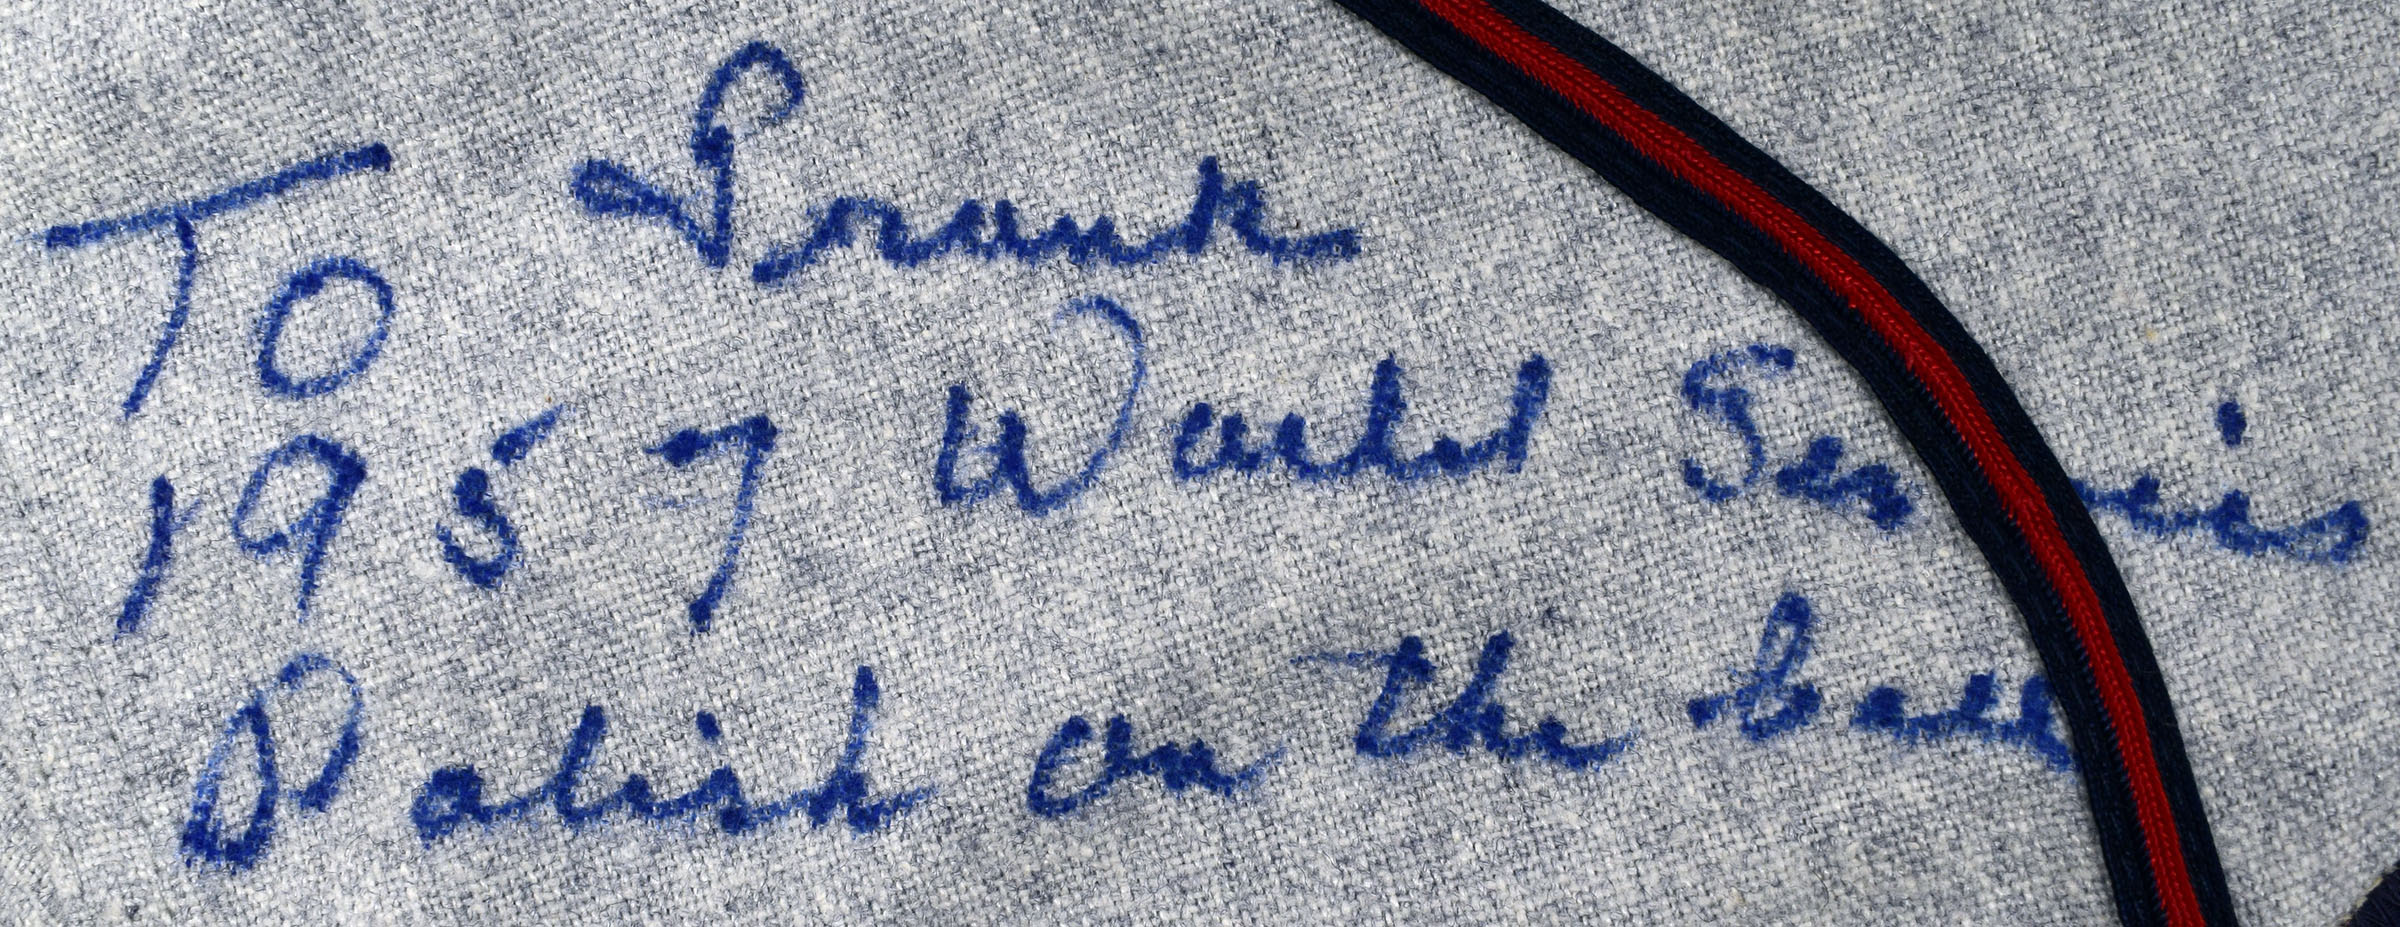 To Frank
1957 World Series
Polish on the ball